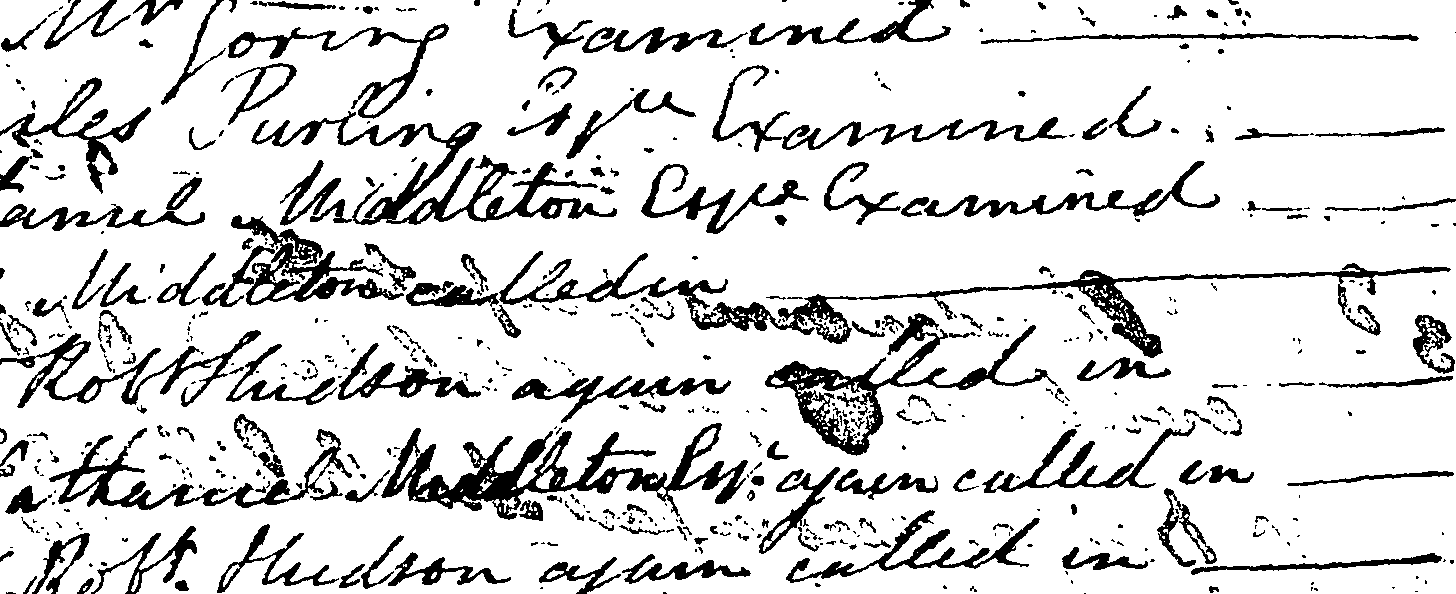 Mr. Goring Examined
rles Purling Esqre Examined.
taniel Middleton Esqr. Examined
Middleton called in
Robt Hudson again called in
athaniel Middleton Esqr. again called in
Robt. Hudson again called in